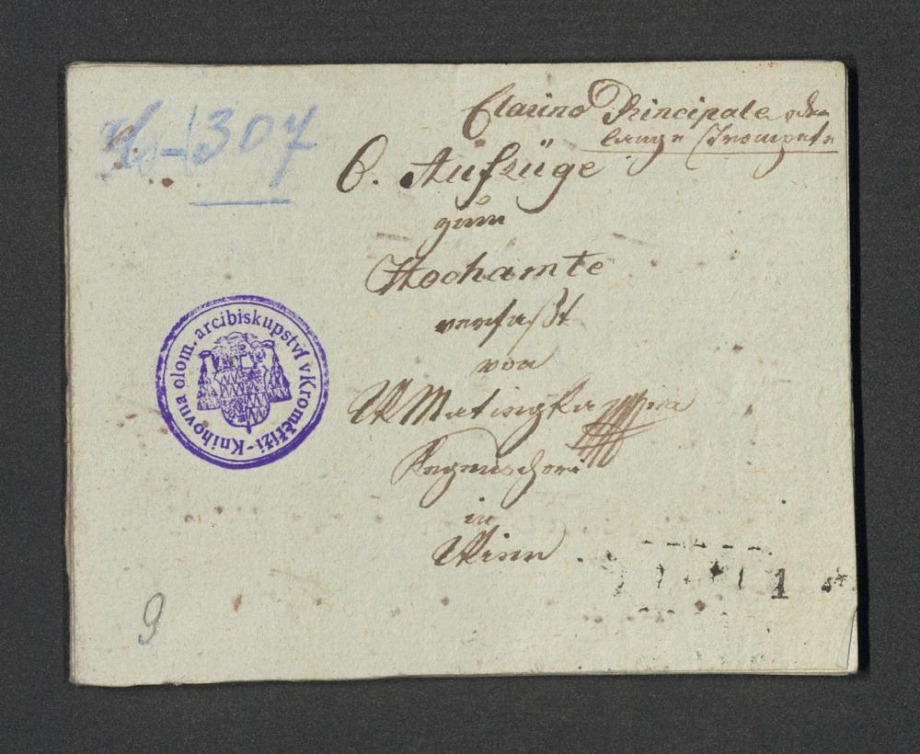 Clarino Principale oder
lange Trompete
-1304
6. Aufzüge
zum
Hochamte
verfaßt
von
W Matingka
Regenschori
in
Wien.
Knihovna olom. arcibiskupství v Kroměříži
1
9